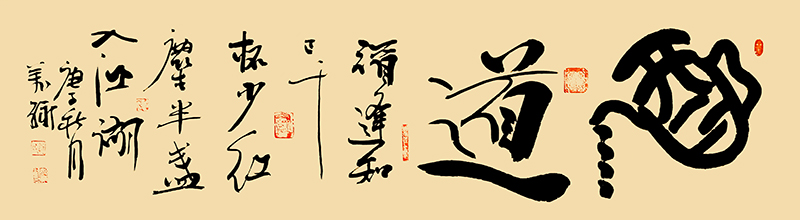 道
酒逢知
己千
杯少红
塵半盏
入江湖
庚子秋月